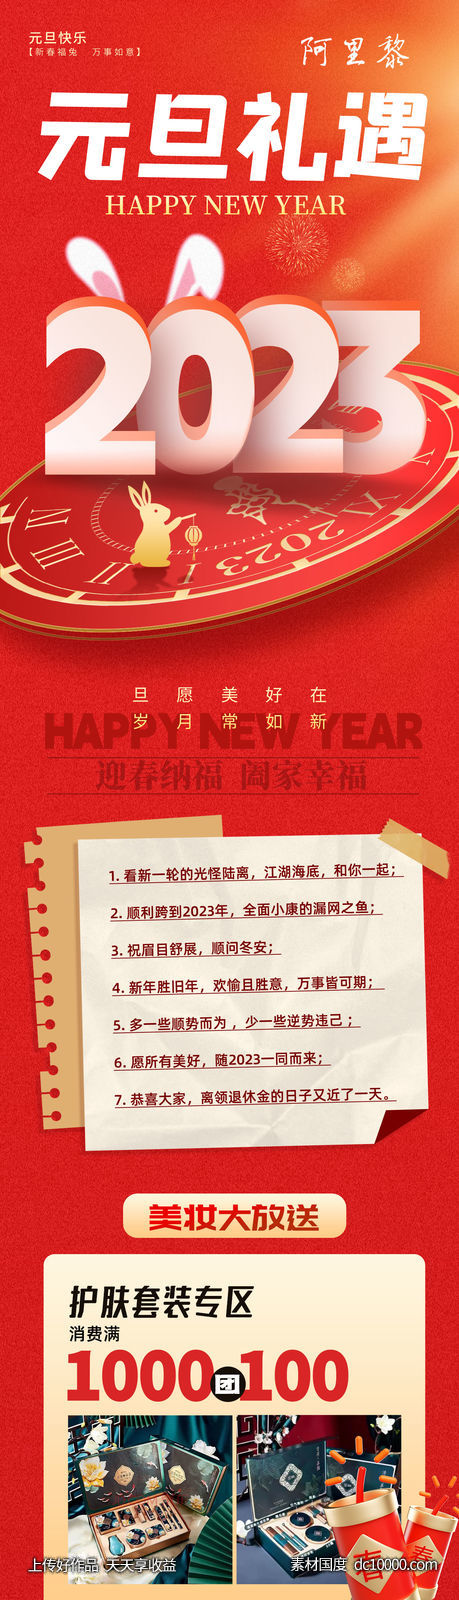 元旦快乐
【新春福兔 万事如意】
阿里黎
元旦礼遇
HAPPY NEW YEAR
2023
2023
旦愿美好在
岁月常如新
HAPPY NEW YEAR
迎春纳福 阖家幸福
1. 看新一轮的光怪陆离，江湖海底，和你一起；
2. 顺利跨到2023年，全面小康的漏网之鱼；
3. 祝眉目舒展，顺问冬安；
4. 新年胜旧年，欢愉且胜意，万事皆可期；
5. 多一些顺势而为 ，少一些逆势违己 ；
6. 愿所有美好，随2023一同而来；
7. 恭喜大家，离领退休金的日子又近了一天。
美妆大放送
护肤套装专区
消费满
1000 100
春
春
上传好作品 天天享收益
素材国度 dc10000.com